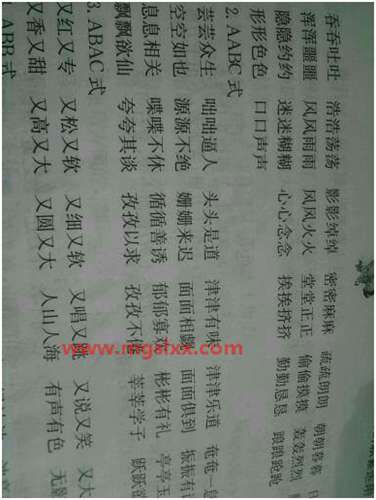 吞吞吐吐 浩浩荡荡 影影绰绰 密密麻麻 疏疏朗朗 朝朝暮暮
浑浑噩噩 风风雨雨 风风火火 堂堂正正 偷偷摸摸 轰轰烈烈
隐隐约约 迷迷糊糊 心心念念 挨挨挤挤 勤勤恳恳
形形色色 口口声声
2. AABC 式
芸芸众生 咄咄逼人 头头是道 津津有味 津津乐道 奄奄一
空空如也 源源不绝 姗姗来迟 面面相觑 面面俱到 振振有
息息相关 喋喋不休 循循善诱 郁郁寡 彬彬有礼 亭亭玉
飘飘欲仙 夸夸其谈 孜孜以求 孜孜不 莘莘学子 跃跃欲
3. ABAC 式
又红又专 又松又软 又细又软 又唱又跳 又说又笑 又大
又香又甜 又高又大 又圆又大 人山人海 有声有色 无
ABB 式
www.mgalxx.com